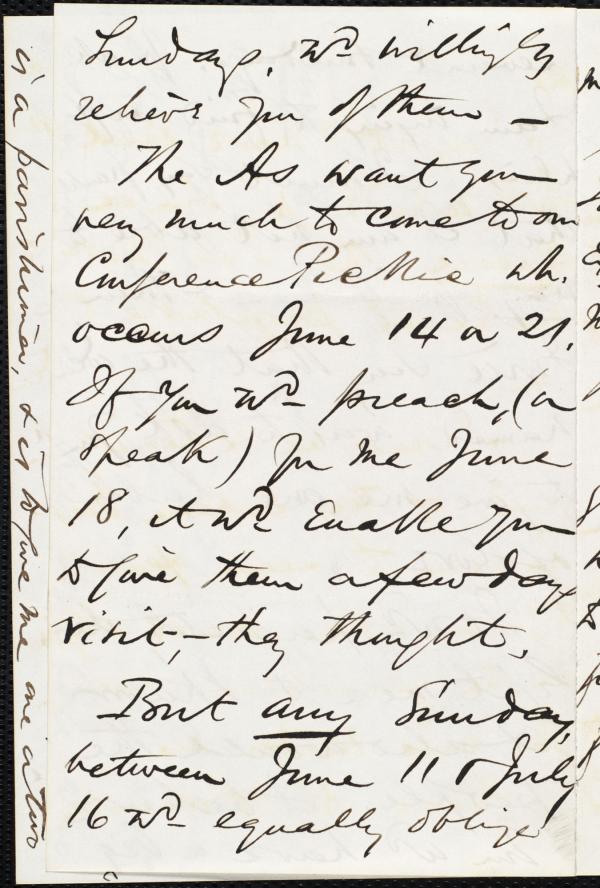 Sundays, wd willingly
relieve you of them —
The As want you
very much to come to our
Conference PicNic wh.
occurs June 14 or 21.
If you wd preach, (or
speak) for me June
18, it wd enable you
to give them a few days
visit, — they thought.
But any Sunday,
between June 11 & July
16 wd equally oblige
is a parishioner, & is to give me one or two